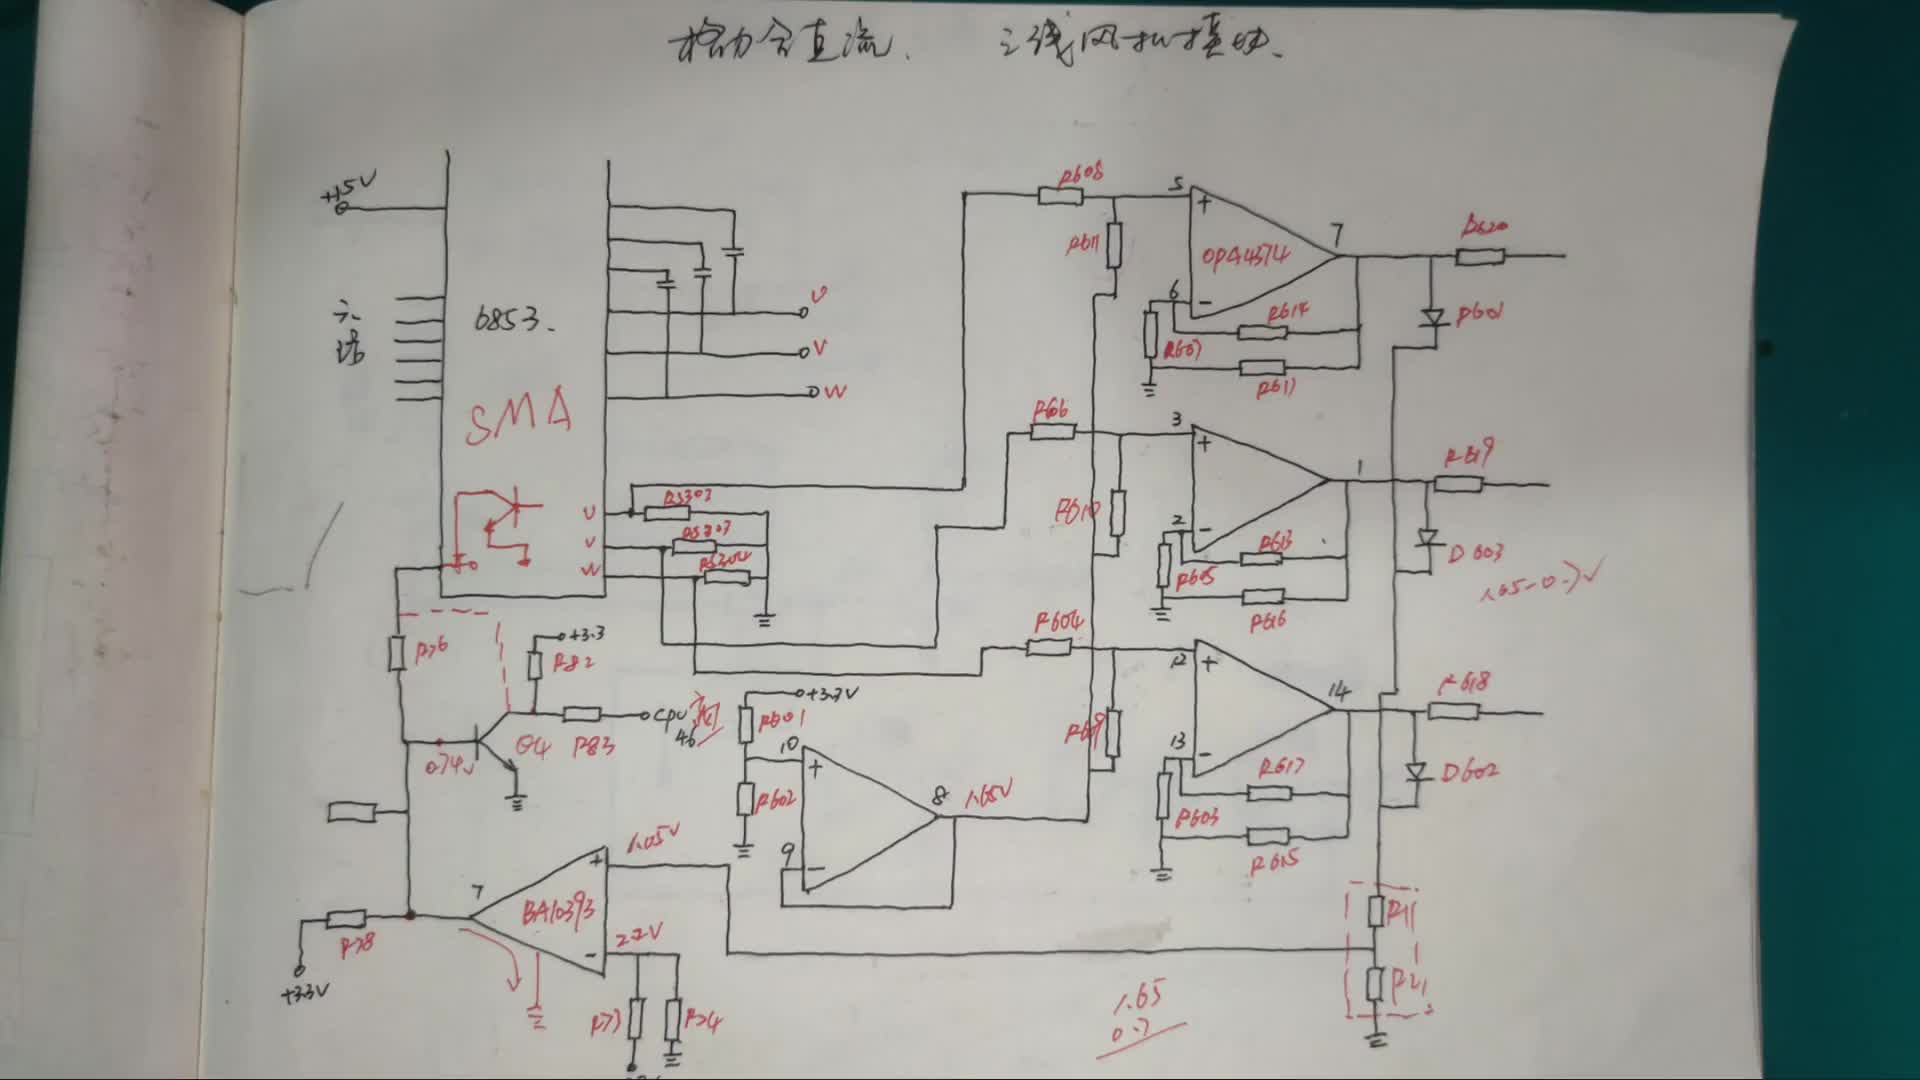 格力全直流. 三线风机模块.
+15V
六
路
6853.
SMA
U
V
W
U
V
W
RS302
RS303
RS304
R608
R611
5
+
OPA4374
7
R620
6
-
R614
R607
R617
D601
R606
3
+
1
R619
R610
2
-
R613
R605
R616
D603
1.65-0.7V
R604
12
+
14
R618
R609
13
-
R617
R603
R615
D602
R76
+3.3
R82
cpu
46
Q4
R83
0.74V
+3.3V
R601
10
+
R602
8
1.65V
9
-
1.05V
+
7
BA10393
2.2V
-
R78
+3.3V
R73
R74
R11
R21
1.65
0.7